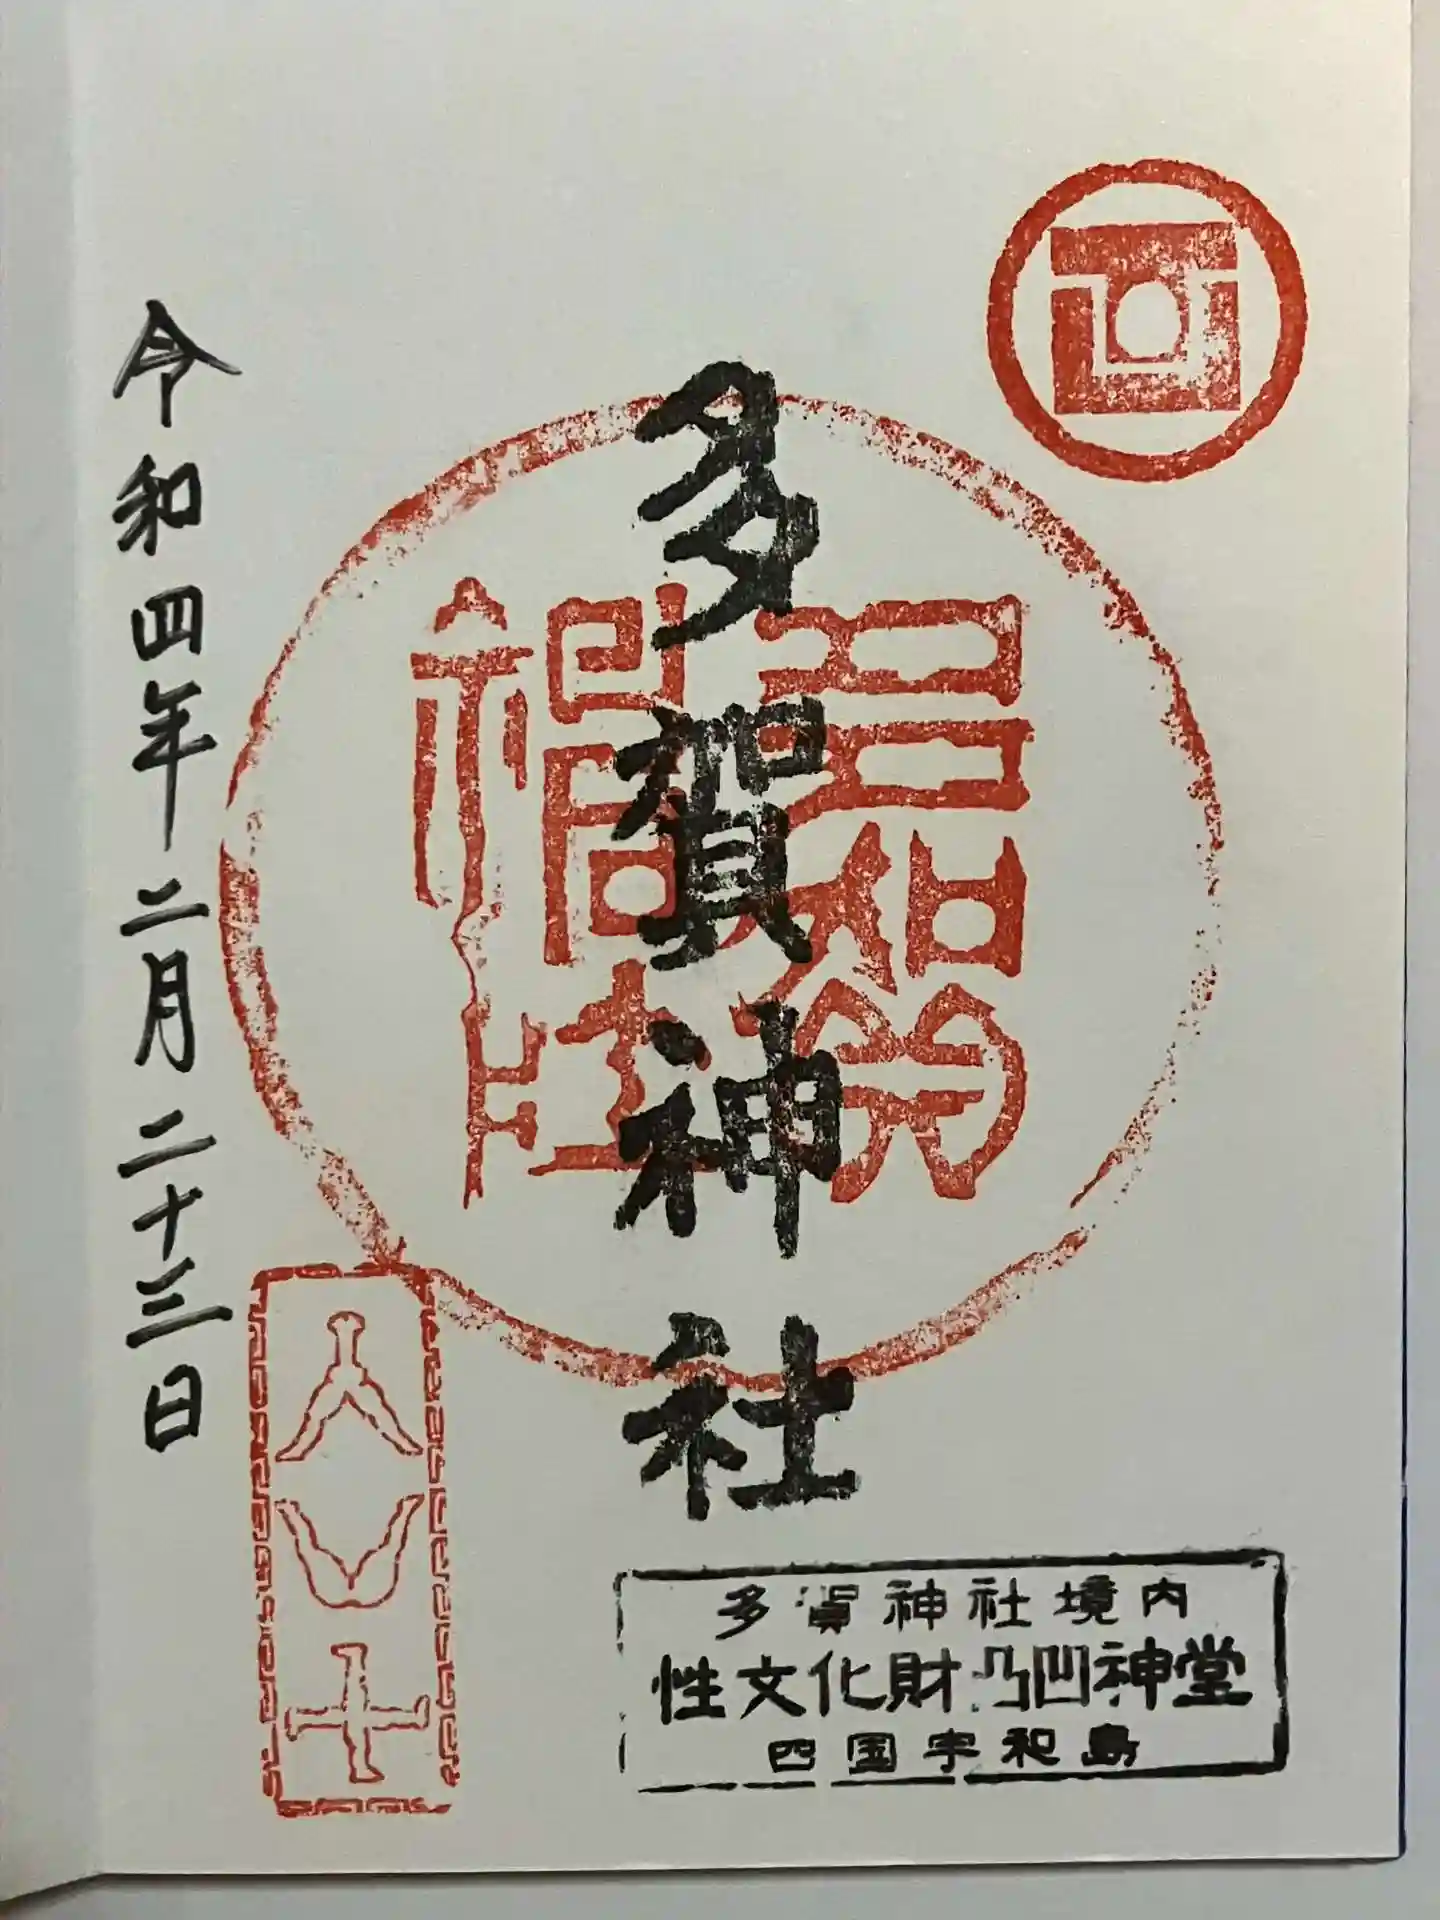 多賀神社
令和四年二月二十三日
多賀神社境内
性文化財凸凹神堂
四国宇和島